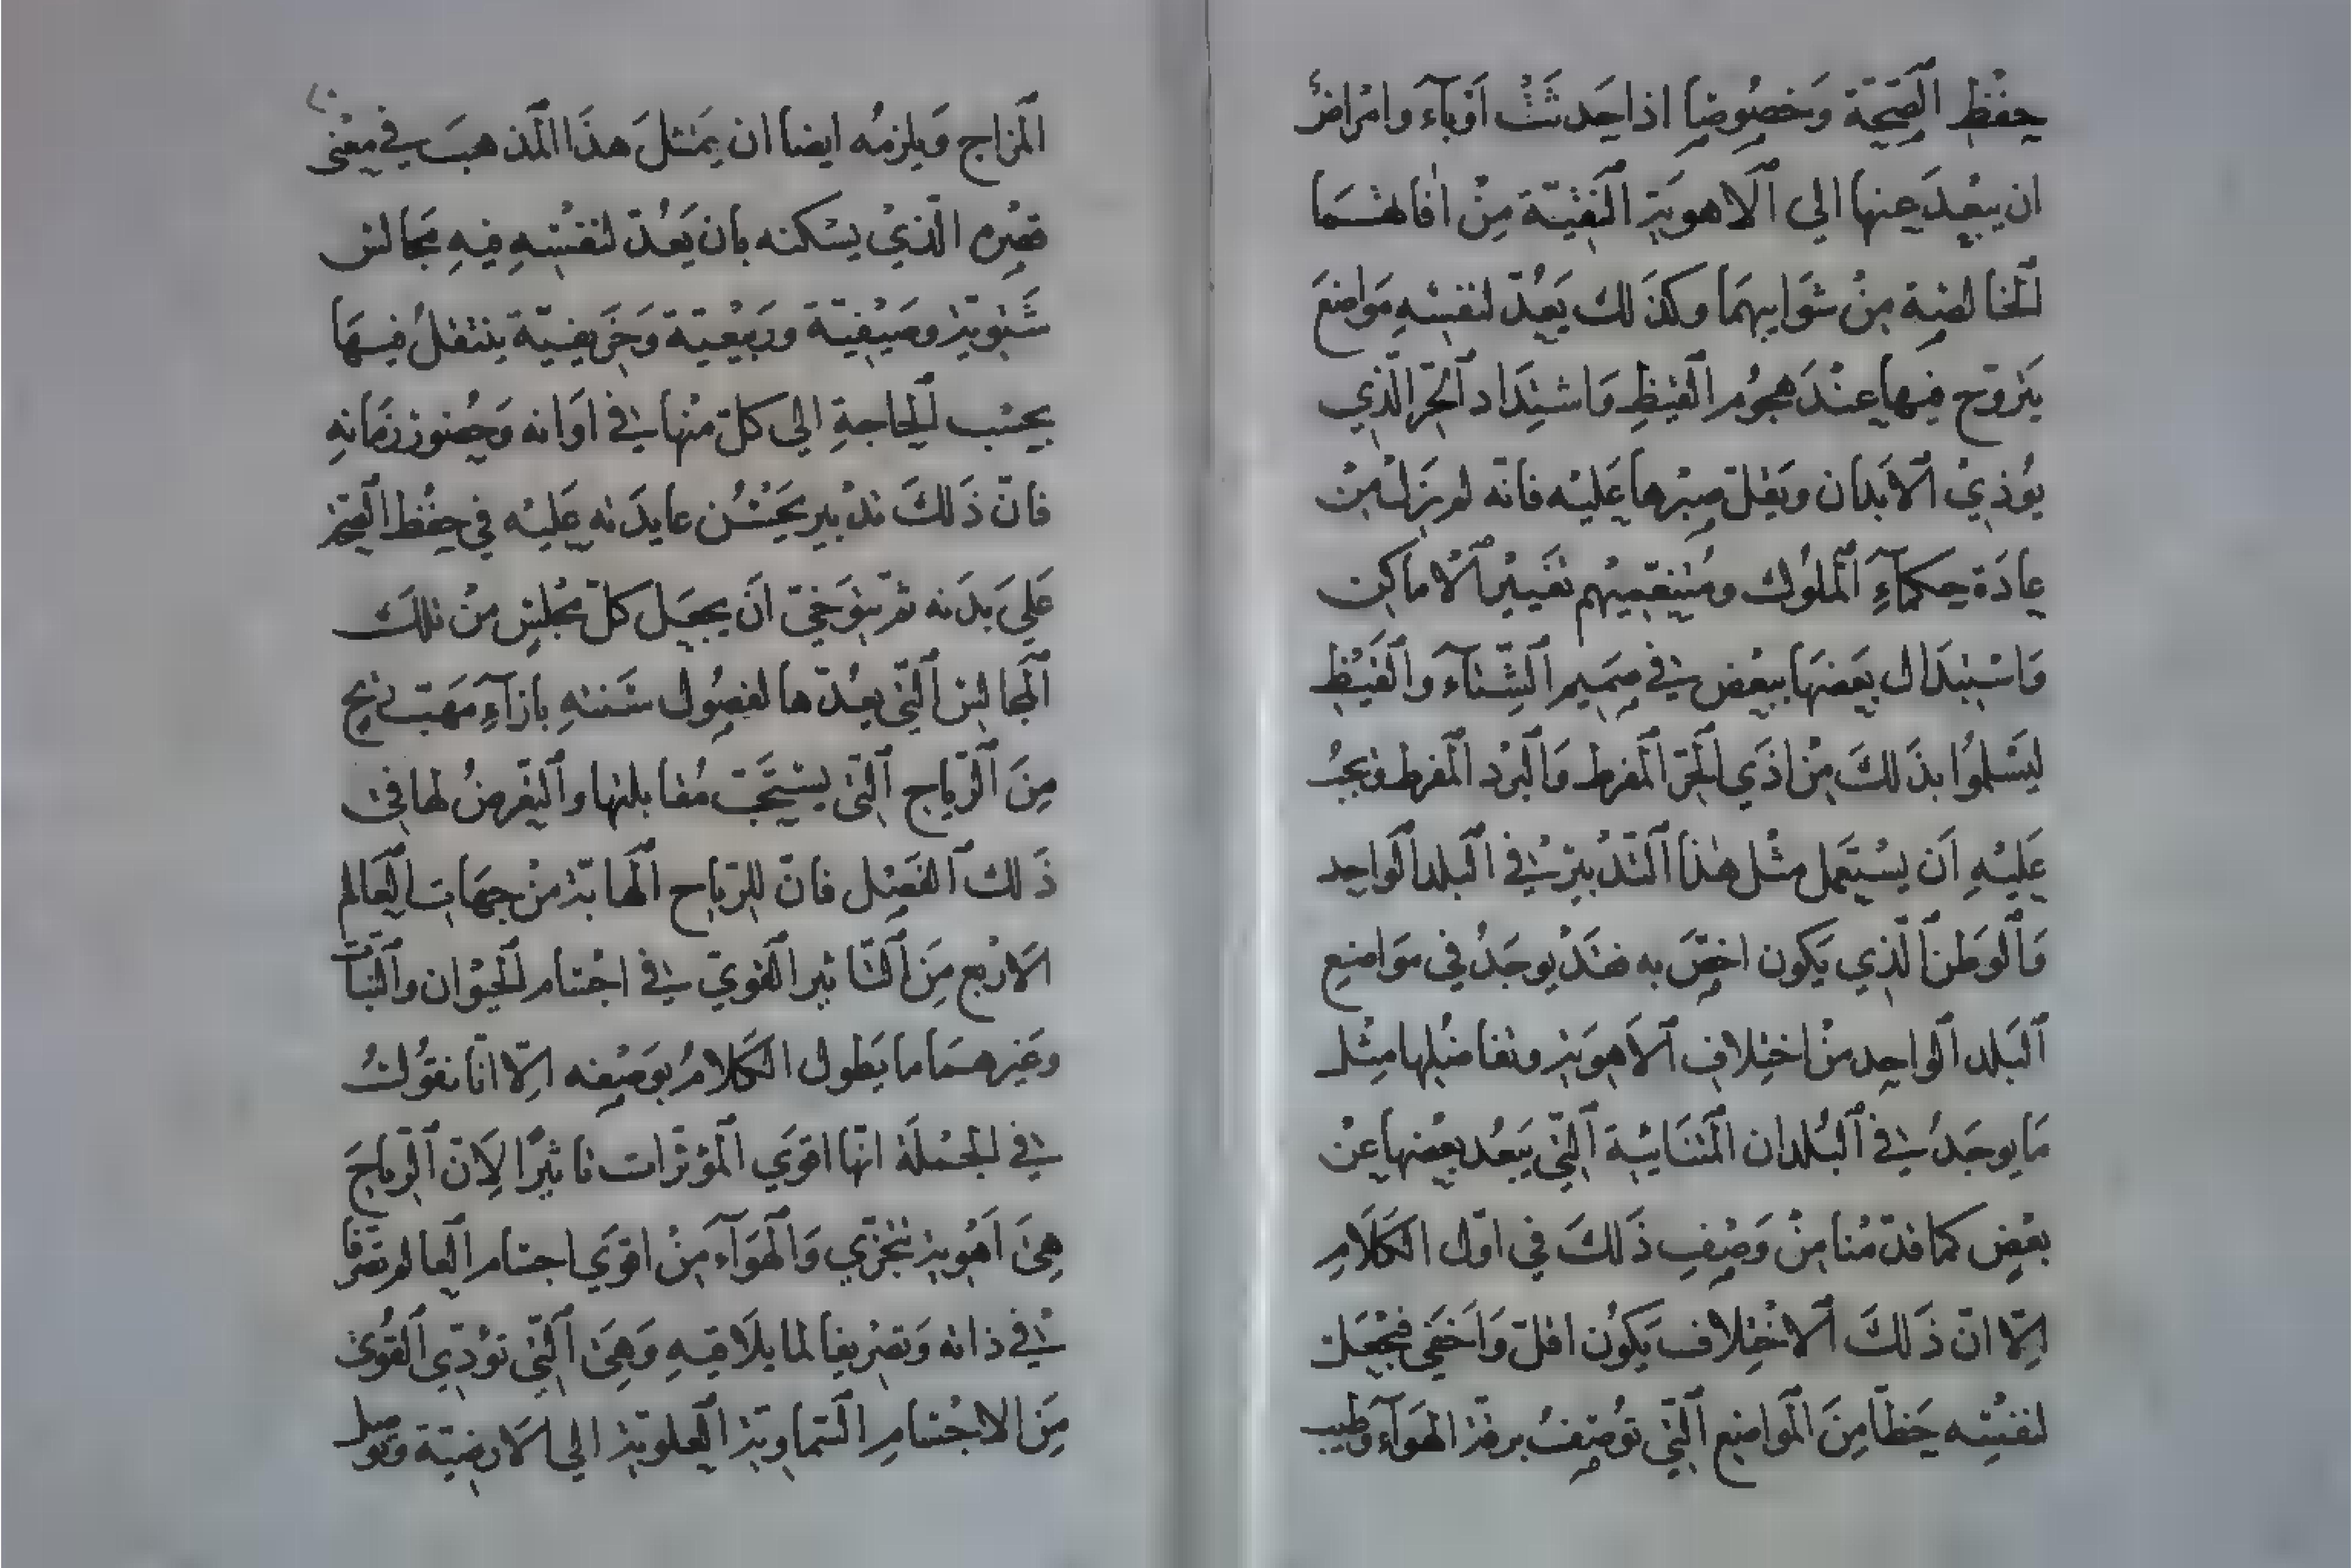 حفظ الصحة وخصوصا اذا حدثت اوباء وامراض
ان يبعد عنها الى الاهوية النقية من افاتهما
الخالصة من شوايبهما وكذلك يعد لنفسه مواضع
يتروح فيها عند هجوم القيظ واشتداد الحر الذي
يوذي الابدان ويقل صبرها عليه فانه لم يزل من
عادة حكماء الملوك ومتنعميهم تغيير الاماكن
واستبدال بعضها ببعض في صميم الشتاء والقيظ
ليسلموا بذلك من اذي الحر المفرط والبرد المفرط ويجب
عليه ان يستعمل مثل هذا التدبير في البلد الواحد
والوطن الذي يكون اختص به فقد يوجد في مواضع
البلد الواحد من اختلاف الاهوية وتفاضلها مثل
ما يوجد في البلدان المتنايية التي يبعد بعضها عن
بعض كما قدمنا من وصف ذلك في اول الكلام
الا ان ذلك الاختلاف يكون اقل واخفي فيجعل
لنفسه حظا من المواضع التي توصف برقة الهواء وطيب
المزاج ويلزمه ايضا ان يمثل هذا المذهب في معنى
قصره الذي يسكنه بان يعد لنفسه فيه مجالس
شتوية وصيفية وربيعية وخريفية ينتقل فيها
بحسب الحاجة الى كل منها في اوانه وحضور زمانه
فان ذلك تدبير يحسن عايدته عليه في حفظ الصحة
علي بدنه ثم يتوخى ان يجعل كل مجلس من تلك
المجالس التي يعدها لفصول سنته بازاء مهب ريح
من الرياح التي يستحب مقابلتها والتعرض لها في
ذلك الفصل فان للرياح الهابة من جهات العالم
الاربع من التاثير القوي في اجسام الحيوان والنبات
وغيرهما ما يطول الكلام بوصفه الا انا نقول
في الجملة انها اقوي الموثرات تاثيرا لان الرياح
هي اهوية تتجزي والهواء من اقوي اجسام العالم تصرفا
في ذاته وتصريفا لما يلاقيه وهي التي تودي القوى
من الاجسام السماوية العلوية الي الارضية وتوصل